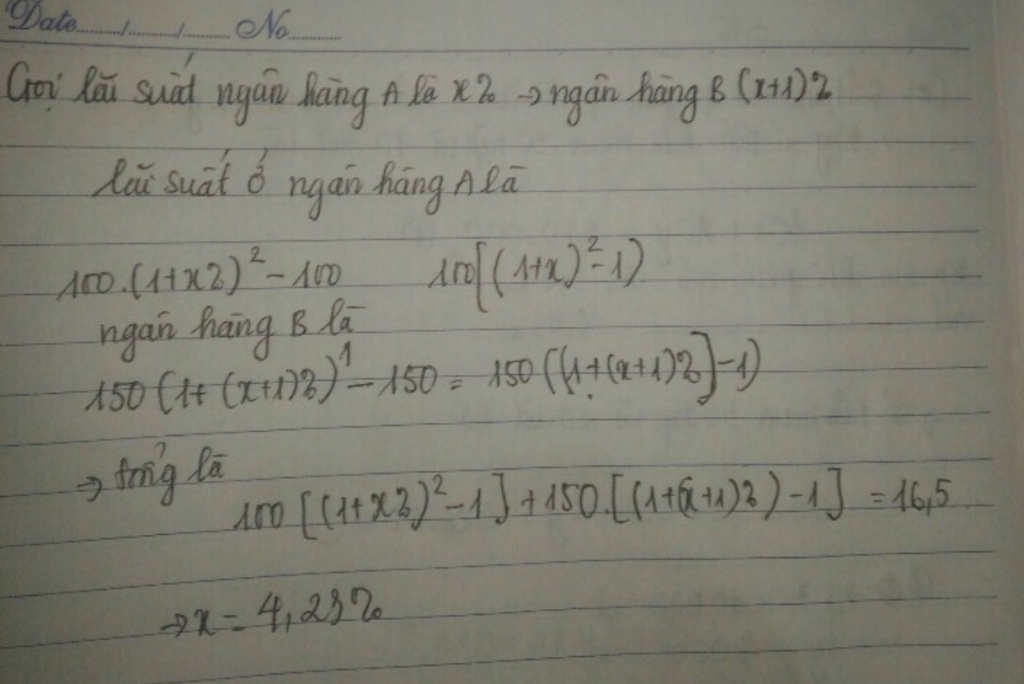 Date...../...../..... No.........
Gọi lãi suất ngân hàng A là x% → ngân hàng B (x+1)%
lãi suất ở ngân hàng A là
100.(1+x%)² - 100 100[(1+x)²-1)
ngân hàng B là
150(1+(x+1)%)¹ - 150 = 150((1+(x+1)%]-1)
→ tổng là
100[(1+x%)²-1]+150.[(1+(x+1)%)-1] = 16,5
→ x = 4,23%